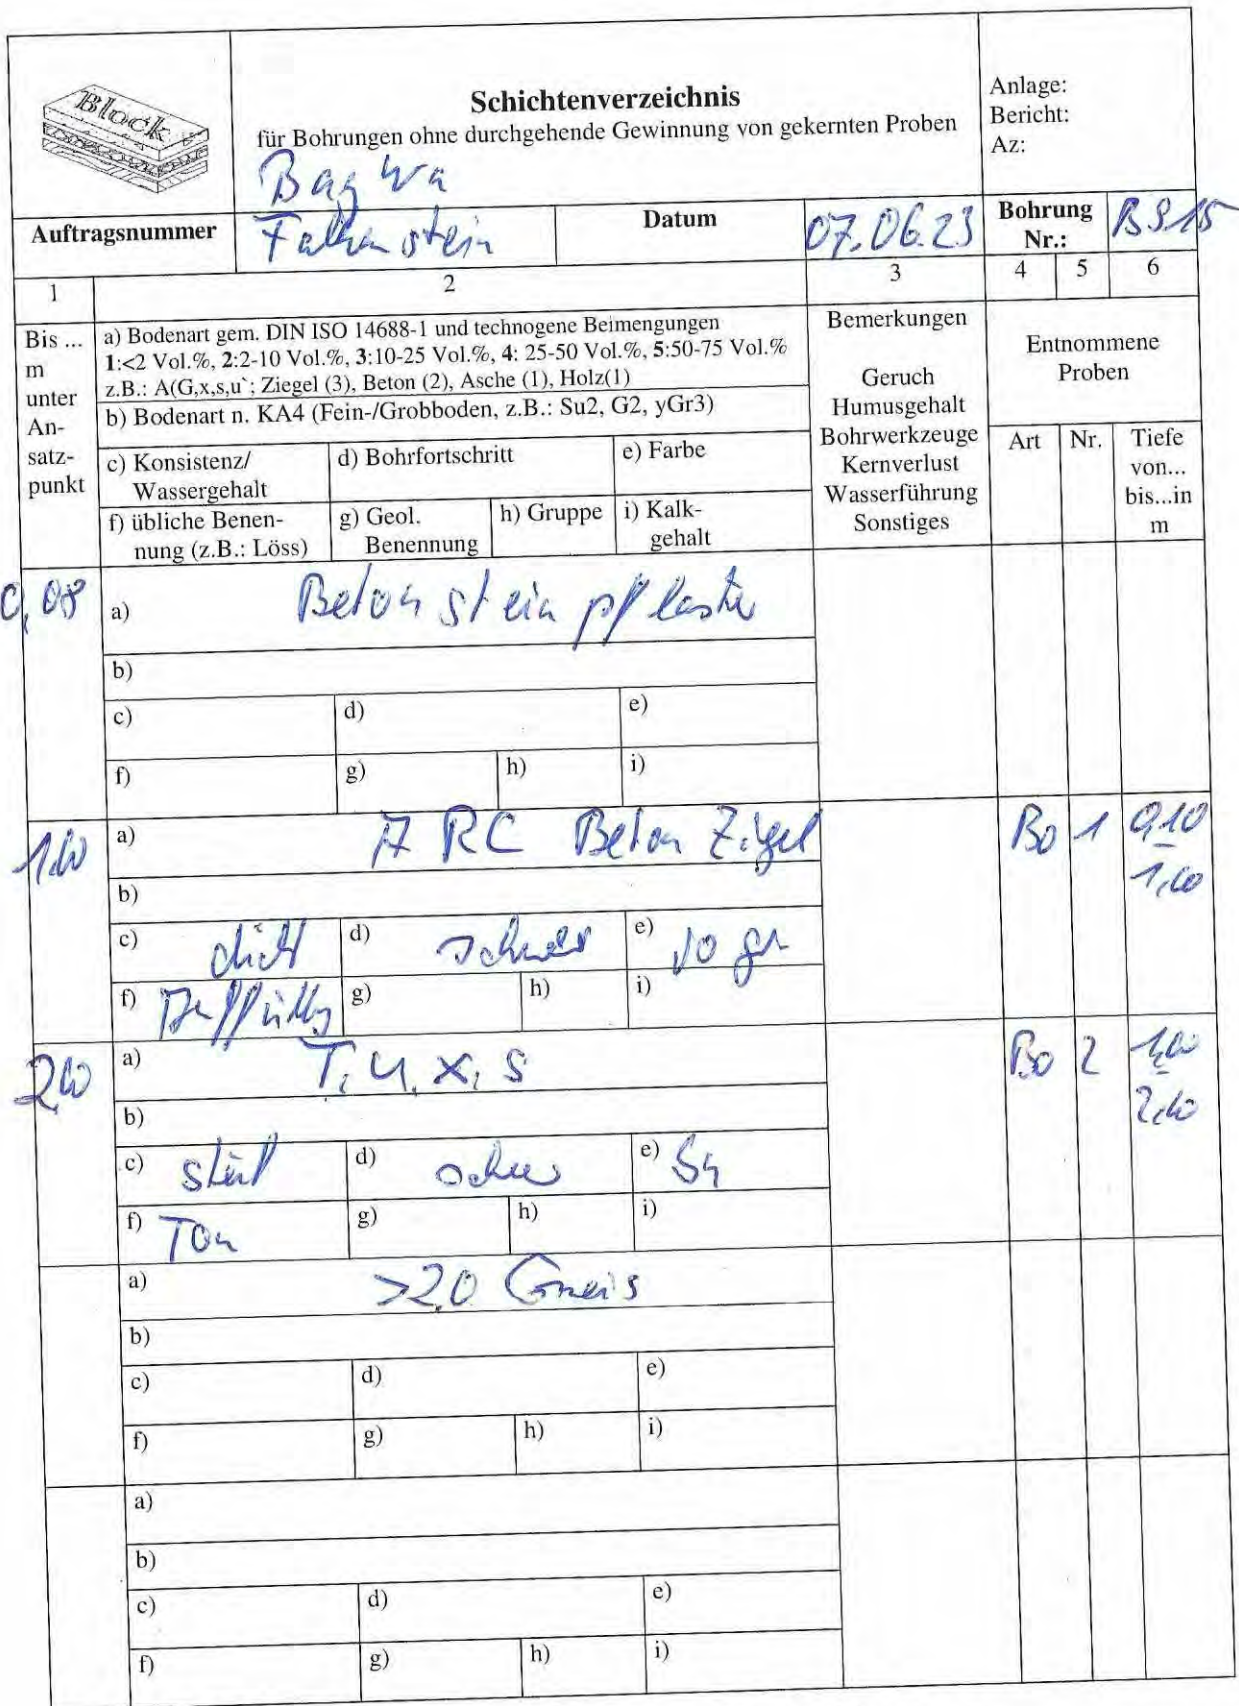 Block
Schichtenverzeichnis
für Bohrungen ohne durchgehende Gewinnung von gekernten Proben
Anlage:
Bericht:
Az:
Bag Wa
Auftragsnummer
Falkenstein
Datum
07.06.23
Bohrung Nr.:
BS 15
1
2
3
4
5
6
Bis ... m unter An-satz-punkt
a) Bodenart gem. DIN ISO 14688-1 und technogene Beimengungen
1:<2 Vol.%, 2:2-10 Vol.%, 3:10-25 Vol.%, 4: 25-50 Vol.%, 5:50-75 Vol.%
z.B.: A(G,x,s,u`; Ziegel (3), Beton (2), Asche (1), Holz(1)
b) Bodenart n. KA4 (Fein-/Grobboden, z.B.: Su2, G2, yGr3)
c) Konsistenz/ Wassergehalt
d) Bohrfortschritt
e) Farbe
f) übliche Benen-nung (z.B.: Löss)
g) Geol. Benennung
h) Gruppe
i) Kalk-gehalt
Bemerkungen
Geruch
Humusgehalt
Bohrwerkzeuge
Kernverlust
Wasserführung
Sonstiges
Entnommene Proben
Art
Nr.
Tiefe von... bis...in m
0,08
a) Betonsteinpflaster
b)
c)
d)
e)
f)
g)
h)
i)
1,00
a) A RC Beton Zigel
Bo 1 0,10
1,00
b)
c) dicht
d) schwer
e)
f)
g)
h)
i)
2,00
a) T, u, x, s
Bo 2 1,00
2,00
b)
c) steif
d)
e)
f) Ton
g)
h)
i)
a) >2,0 Gneis
b)
c)
d)
e)
f)
g)
h)
i)
a)
b)
c)
d)
e)
f)
g)
h)
i)